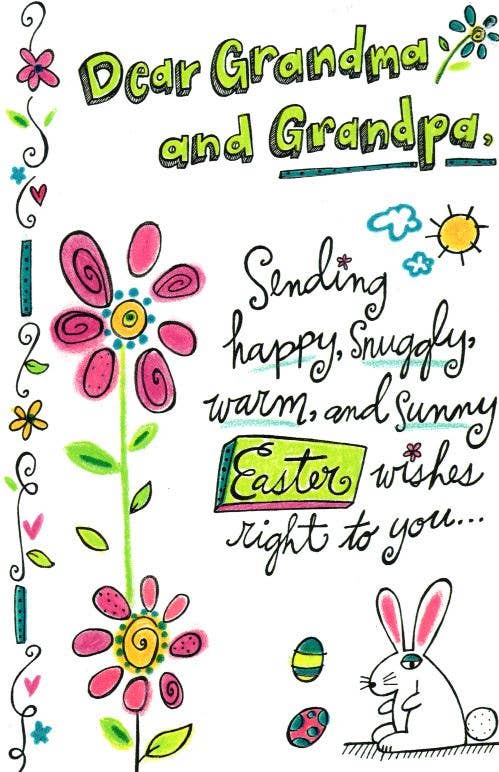 Dear Grandma
and Grandpa,
Sending
happy, snuggly,
warm, and sunny
Easter wishes
right to you...